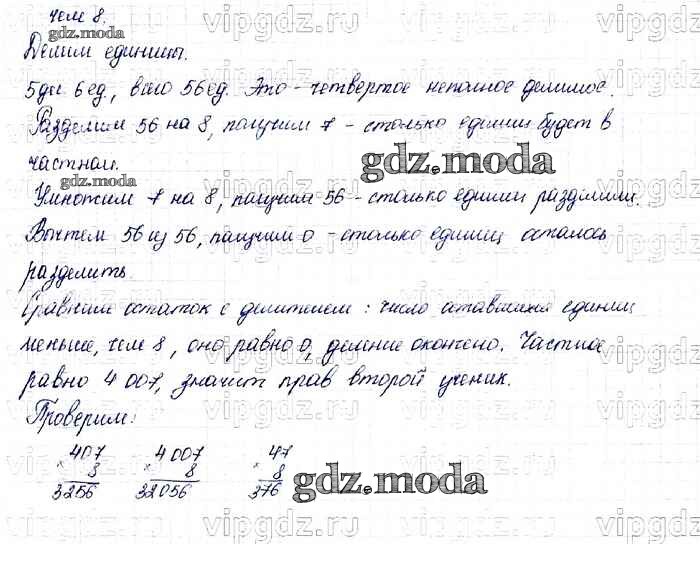 чем 8.
Делим единицы.
5 дес 6 ед., всего 56 ед. Это - четвертое неполное делимое.
Разделим 56 на 8, получим 7 - столько единиц будет в
частном.
Умножим 7 на 8, получим 56 - столько единиц разделили.
Вычтем 56 из 56, получим 0 - столько единиц осталось
разделить.
Сравним остаток с делителем: число оставшихся единиц
меньше, чем 8, оно равно 0, деление окончено. Частное
равно 4 007, значит прав второй ученик.
Проверим:
407 4 007 47
× 8 × 8 × 8
3256 32 056 376
gdz.moda
gdz.moda
gdz.moda
gdz.moda
vipgdz.ru